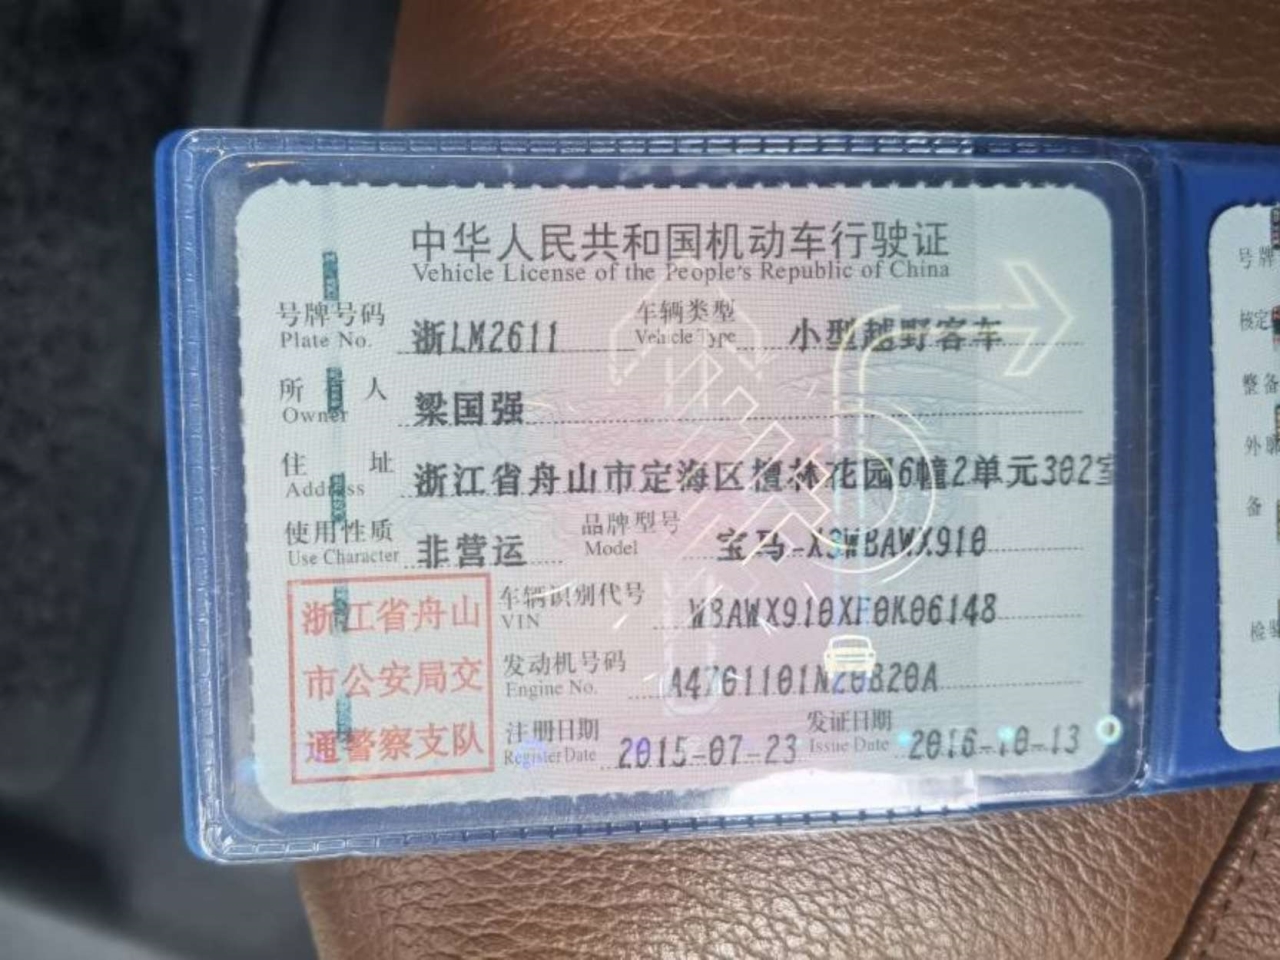 中华人民共和国机动车行驶证
Vehicle License of the People's Republic of China
号牌号码 浙LM2611 车辆类型 小型越野客车
Plate No. Vehicle Type
所 人 梁国强
Owner
住 址 浙江省舟山市定海区檀林花园6幢2单元302室
Address
使用性质 非营运 品牌型号 宝马
Use Character Model
浙江省舟山
市公安局交
通警察支队
车辆识别代号 WBAWX910XF0K06148
VIN
发动机号码 A4761101N20B20A
Engine No.
注册日期 2015-07-23 发证日期 2016-10-13
Register Date Issue Date
号牌
核定
整备
外廓
备
检验